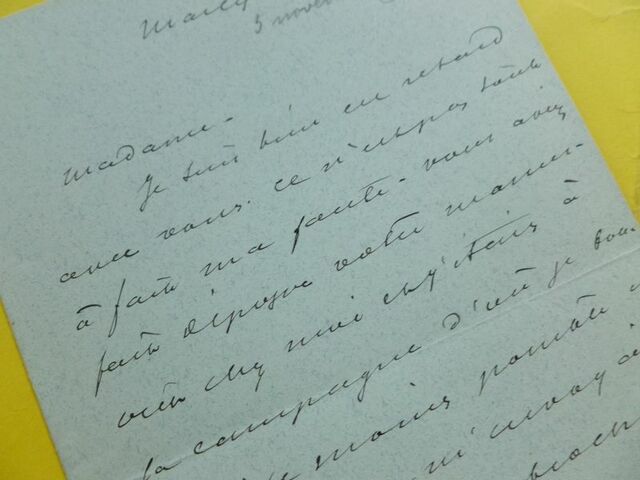 Marly
5 novem
Madame.
Je suis bien en retard
avec vous. ce n'est pas tout
à fait ma faute. vous aviez
fait déposer votre manus-
crit chez moi et j'étais à
la campagne d'où je
moins
m'envoy